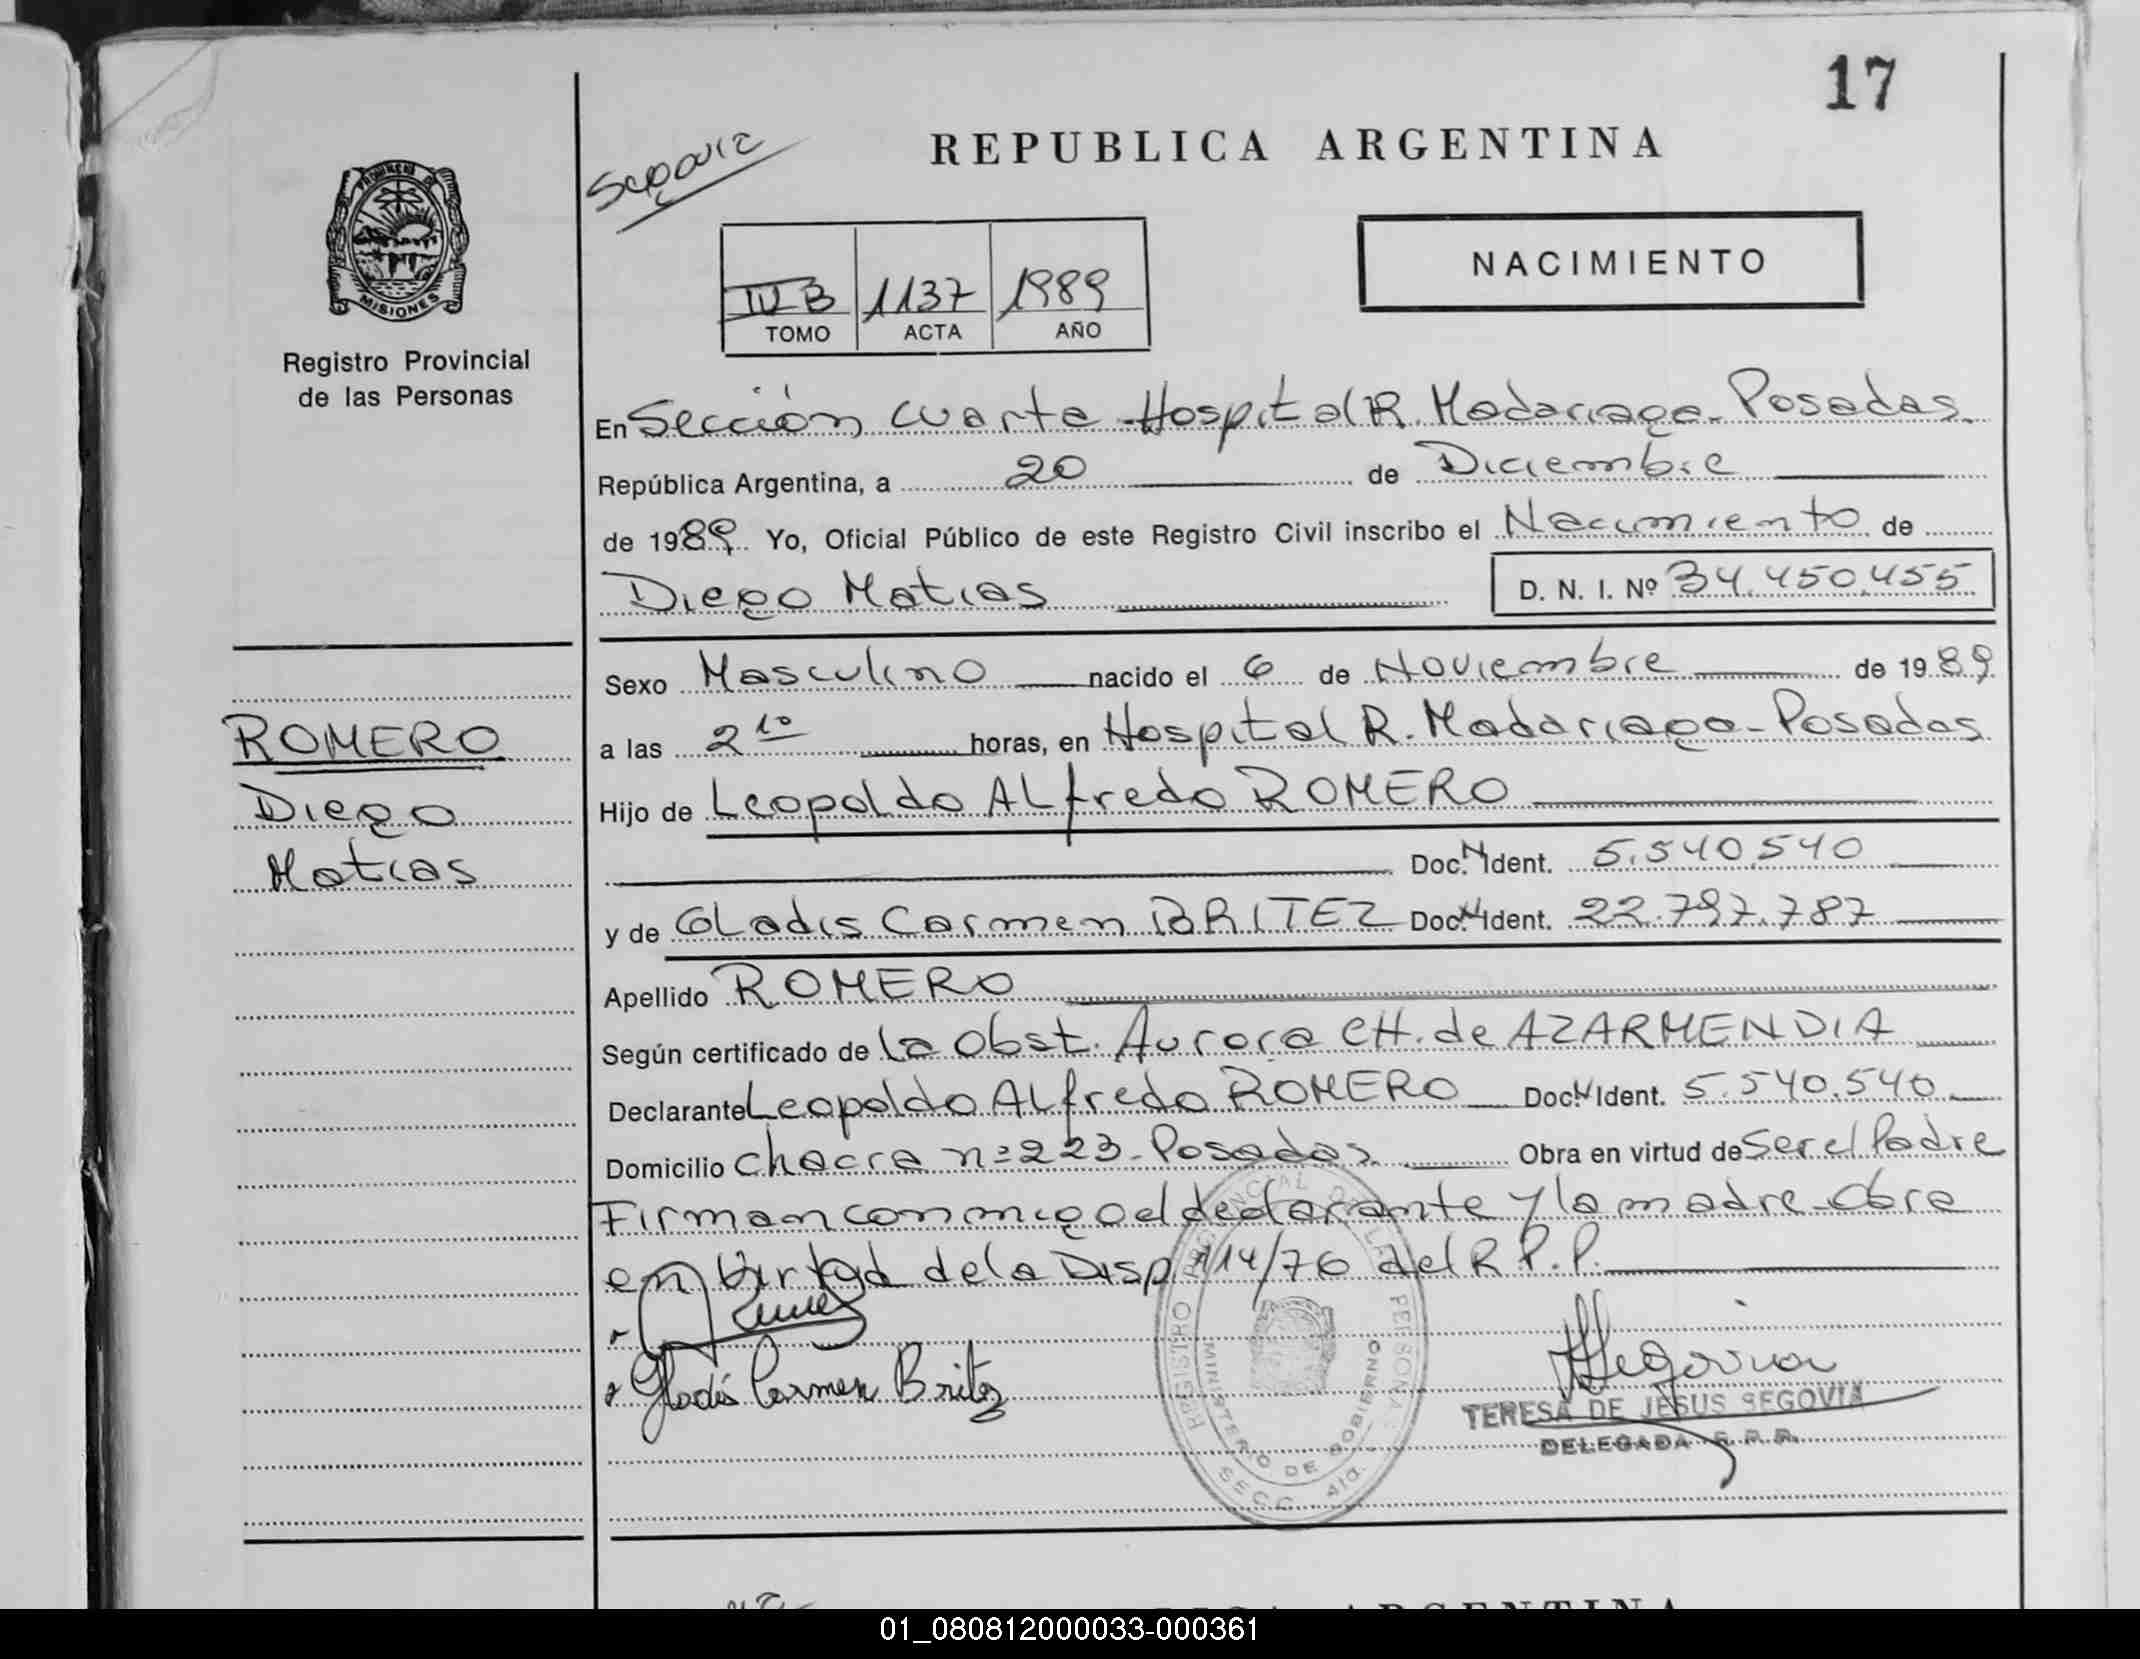 17
REPUBLICA ARGENTINA
Segovia
PROVINCIA DE
MISIONES
Registro Provincial
de las Personas
NACIMIENTO
IV B 1137 1989
TOMO ACTA AÑO
En Sección Cuarta Hospital R. Madariaga - Posadas
República Argentina, a 20 de Diciembre
de 1989 Yo, Oficial Público de este Registro Civil inscribo el Nacimiento de
Diego Matias D. N. I. Nº 34.450.455
Sexo Masculino nacido el 6 de Noviembre de 1989
ROMERO
Diego
Matias
a las 2 10 horas, en Hospital R. Madariaga - Posadas
Hijo de Leopoldo Alfredo ROMERO
Doc. N Ident. 5.540.540
y de Gladis Carmen BRITEZ Doc. N Ident. 22.797.787
Apellido ROMERO
Según certificado de la Obst. Aurora CH. de AZARMENDIA
Declarante Leopoldo Alfredo ROMERO Doc. N Ident. 5.540.540
Domicilio Chacra nº 223 - Posadas Obra en virtud de Ser el Padre
Firman conmigo el declarante y la madre - Obra
en virtud de la Disp 114/76 del R.P.P.
Gladis Carmen Britez
Segovia
TERESA DE JESUS SEGOVIA
DELEGADA R. P. P.
REGISTRO PROVINCIAL DE LAS PERSONAS
MINISTERIO DE GOBIERNO
SECC. 4ta.
ARGENTINA
01_080812000033-000361